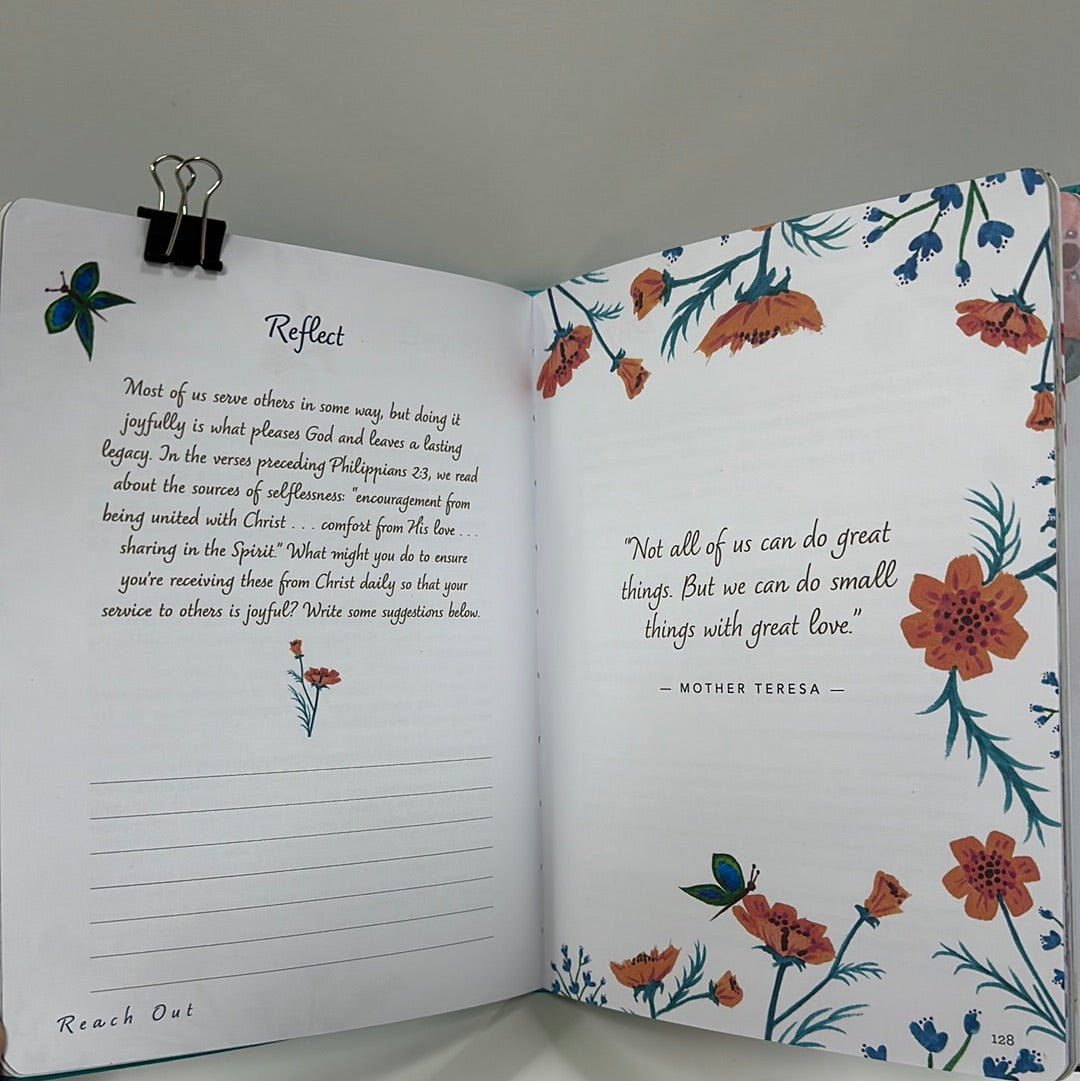 Reflect
Most of us serve others in some way, but doing it
joyfully is what pleases God and leaves a lasting
legacy. In the verses preceding Philippians 2:3, we read
about the sources of selflessness: "encouragement from
being united with Christ . . . comfort from His love . . .
sharing in the Spirit." What might you do to ensure
you're receiving these from Christ daily so that your
service to others is joyful? Write some suggestions below.
Reach Out
"Not all of us can do great
things. But we can do small
things with great love."
— MOTHER TERESA —
128